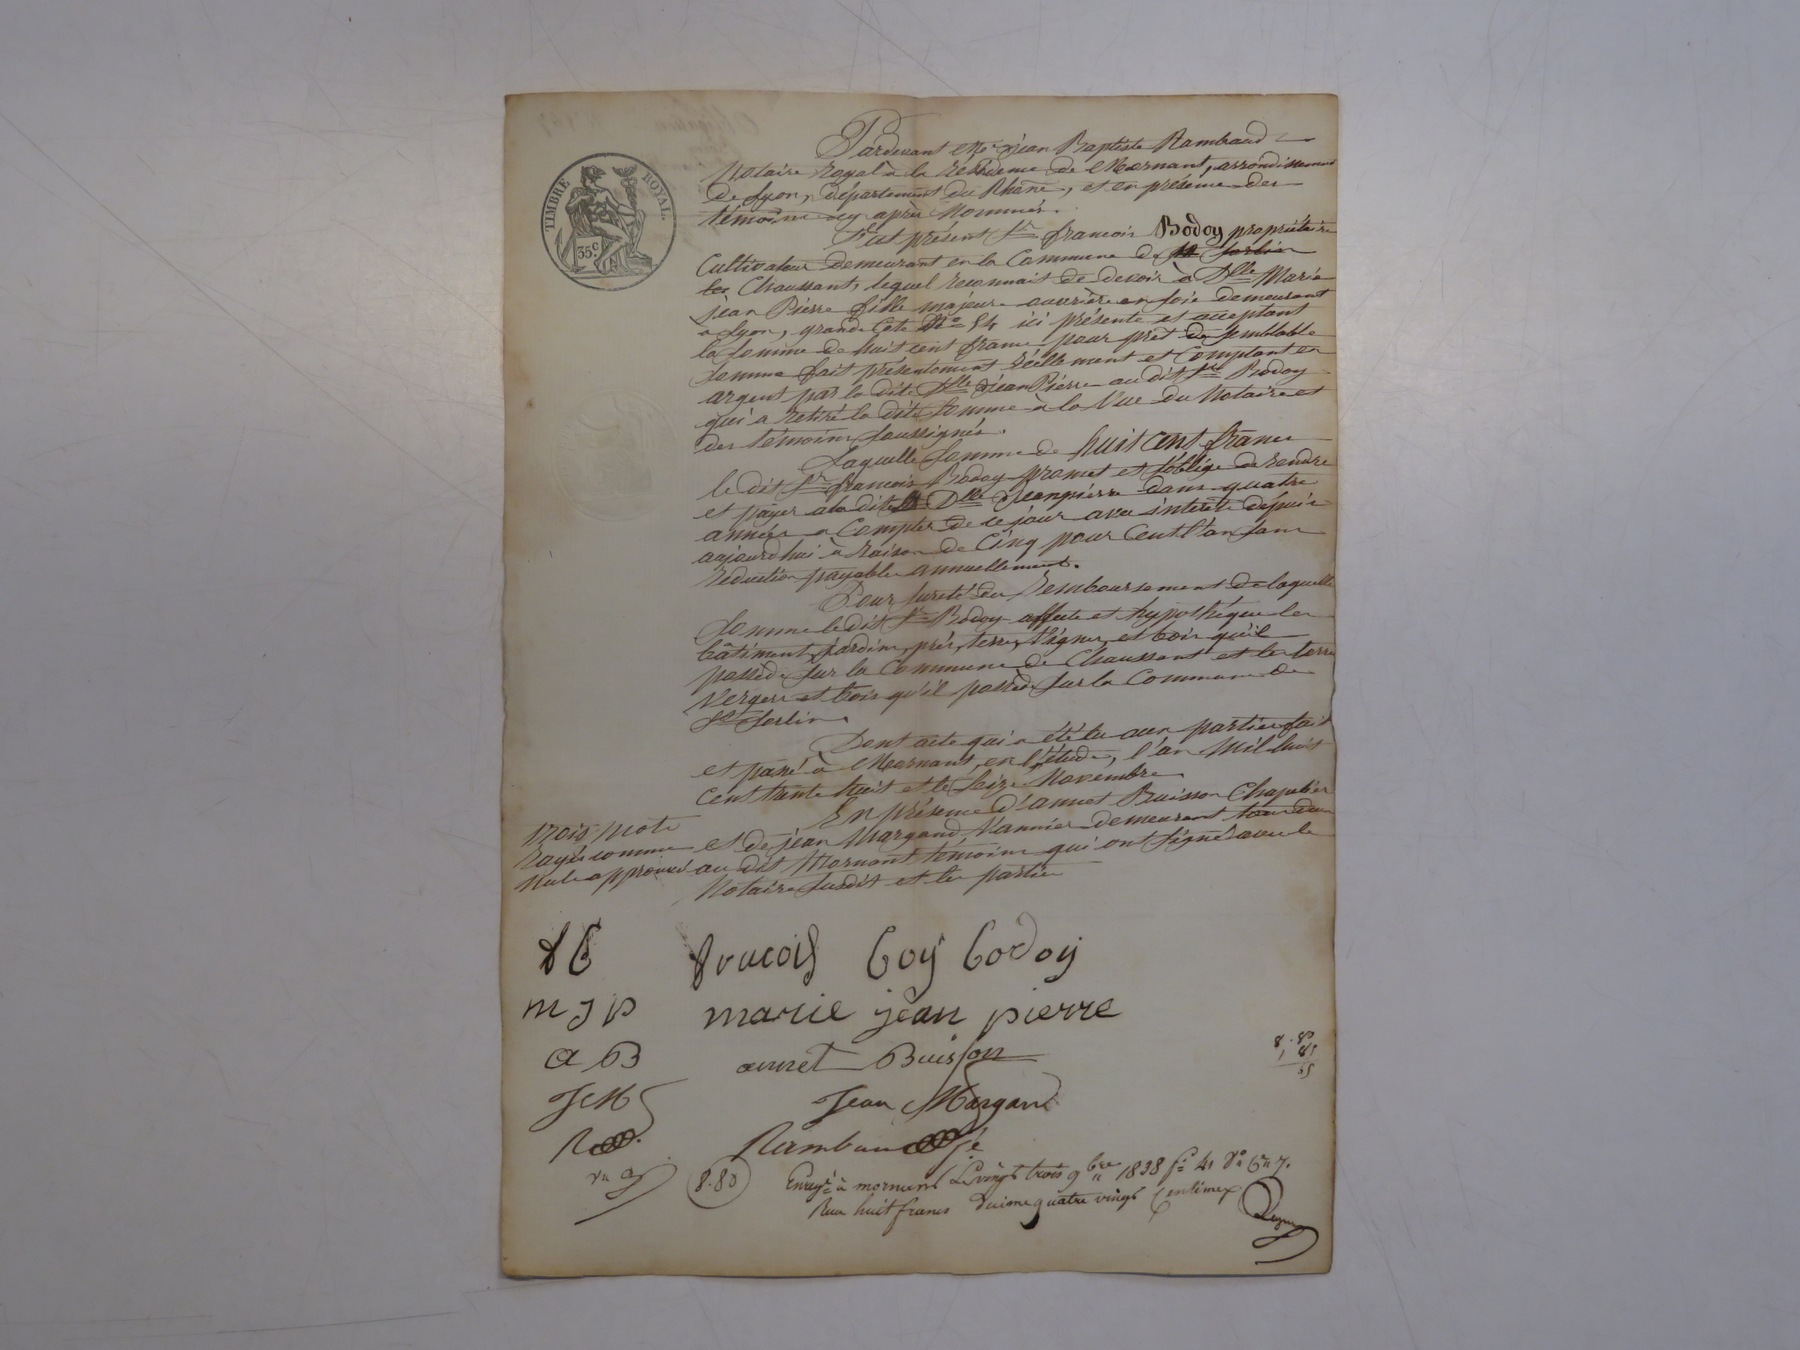 TIMBRE ROYAL.
35c
Pardevant Me Jean Baptiste Rambaud
Notaire Royal à la résidence de Mornant, arrondissement
de Lyon, département du Rhône, et en présence des
témoins cy après Nommés.
S'est présent Sr francois Bodoy propriétaire
Cultivateur demeurant en la Commune de St Sorlin
les Chaussant, lequel reconnait de devoir à Dlle Marie
jean Pierre fille majeure ouvrière en soie demeurant
à Lyon, grande Cote No 54 ici présente et acceptant
la somme de huit cent francs pour prêt de semblable
somme fait présentement réellement et Comptant en
argent par la dite Dlle Jean Pierre au dit Sr Bodoy
qui a retiré la dite somme à la Vue du Notaire et
des témoins soussignés.
Laquelle somme de huit cent francs
le dit Sr francois Bodoy promet et s'oblige de rendre
et payer à la dite Dlle Jeanpierre dans quatre
années à Compter de ce jour avec intérêts depuis
aujourdhui à raison de Cinq pour Cent l'an sans
réduction payable annuellement.
Pour sureté du Remboursement de laquelle
somme le dit Sr Bodoy affecte et hypothèque les
bâtiment, jardin, prés, terres, Vignes, et bois qu'il
possède sur la Commune de Chaussant et les terres
Vergers et bois qu'il possède sur la Commune de
St Sorlin.
Dont acte qui a été lu aux parties fait
et passé à Mornant, en l'étude, l'an Mil huit
Cent trente huit et le Seize Novembre
En présence d'annet Buisson Chapelier
et de jean Margand Vannier demeurant tous deux
au dit Mornant témoins qui ont signé avec le
Notaire susdit et les parties
trois mots
rayés comme
nuls approuvé
f B francois boy bodoy
m j p marie jean pierre
a B annet Buisson
J M Jean Margand
R Rambaud
8.80
8.80
Enregé à mornant Le vingt trois 9bre 1838 fo 41 Vo Ces 7.
Reçu huit francs Décime quatre vingt Centimes